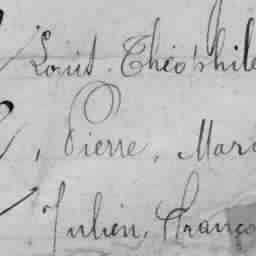 Louis Théophile
, Pierre, Mar
Julien, Franço